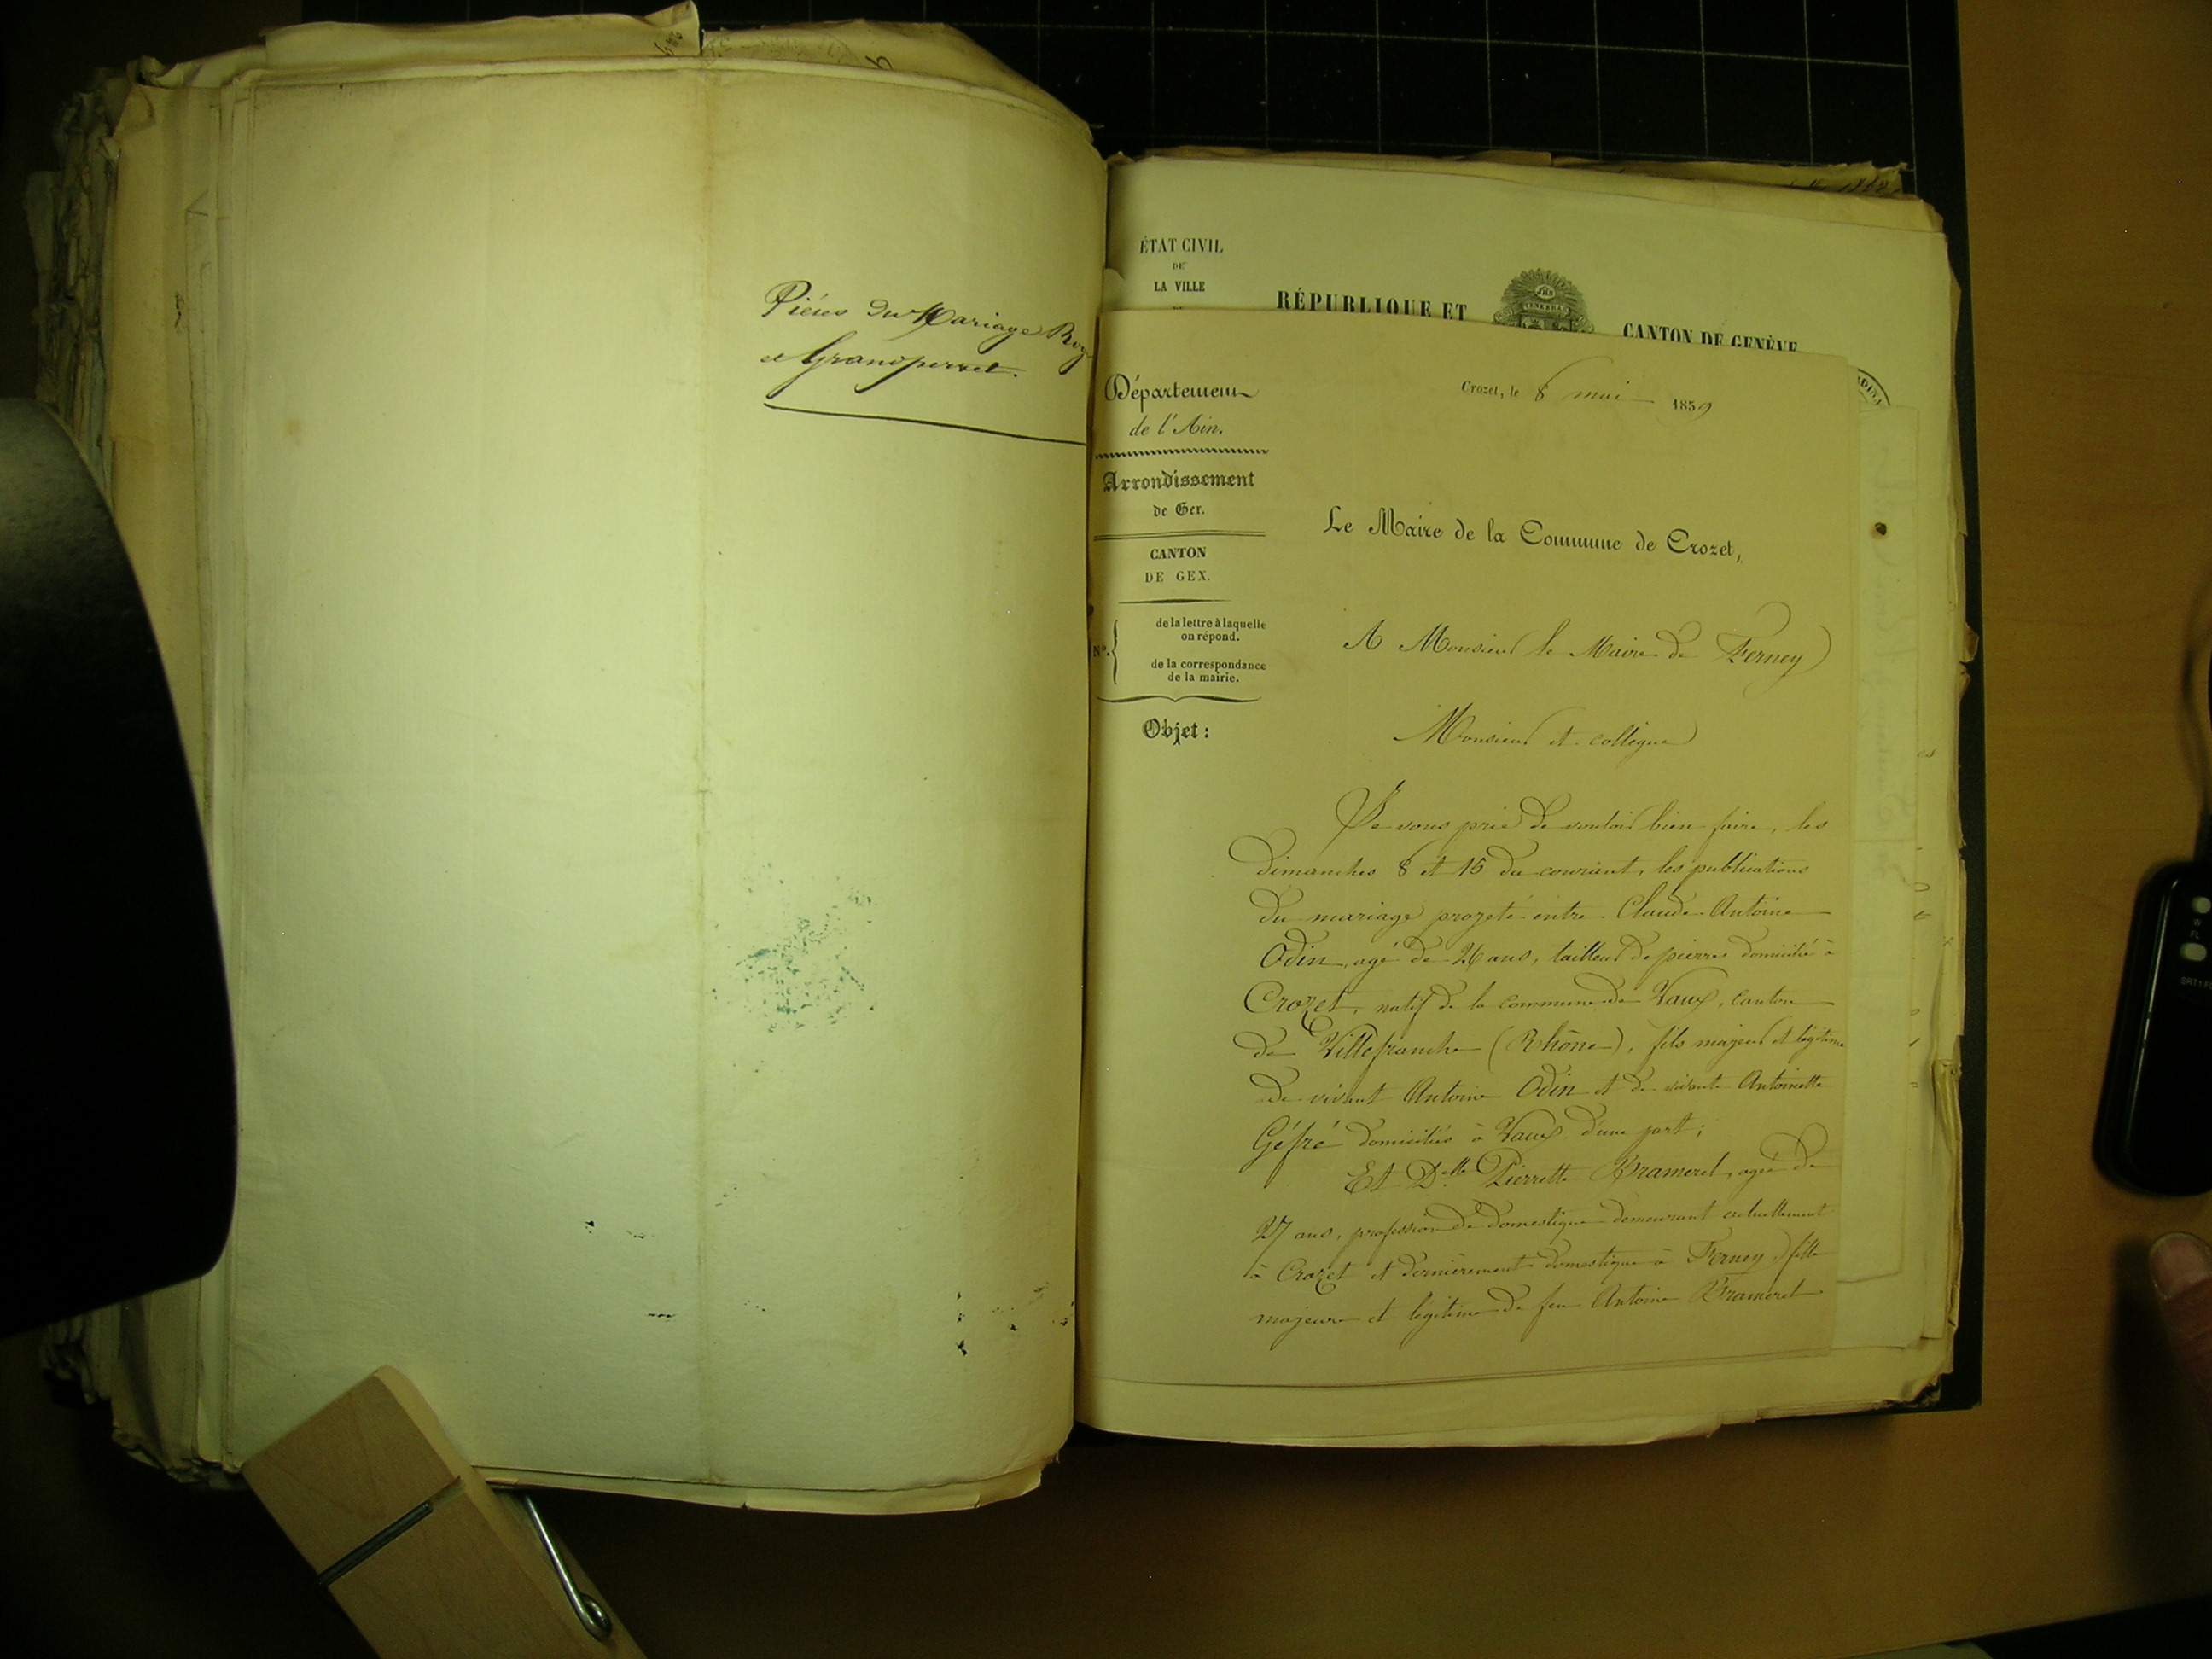 Pièces du Mariage Roy
et Grandperret.
ÉTAT CIVIL
DE
LA VILLE
RÉPUBLIQUE ET
CANTON DE GENÈVE
Département
de l'Ain.
Arrondissement
de Gex.
CANTON
DE GEX.
N.os
de la lettre à laquelle
on répond.
de la correspondance
de la mairie.
Objet :
Crozet, le 8 mai 1859
Le Maire de la Commune de Crozet,
A Monsieur le Maire de Ferney
Monsieur et collègue
Je vous prie de vouloir bien faire, les
dimanches 8 et 15 du courant, les publications
du mariage projeté entre Claude Antoine
Odin, agé de 26 ans, tailleur de pierres domicilié à
Crozet, natif de la commune de Vaux, canton
de Villefranche (Rhône), fils majeur et légitime
de vivant Antoine Odin et de vivante Antoinette
Géfré domiciliés à Vaux d'une part ;
Et D.elle Pierrette Brameret, agée de
27 ans, profession de domestique demeurant actuellement
à Crozet et dernièrement domestique à Ferney, fille
majeure et légitime de feu Antoine Brameret